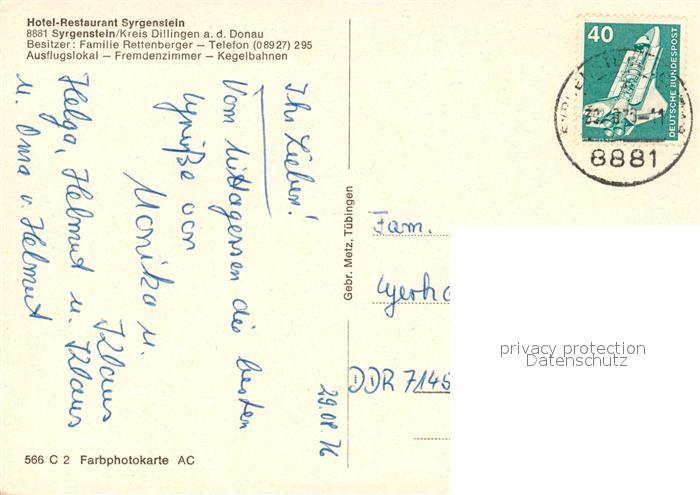 Hotel-Restaurant Syrgenstein
8881 Syrgenstein/Kreis Dillingen a. d. Donau
Besitzer : Familie Rettenberger — Telefon (0 89 27) 295
Ausflugslokal — Fremdenzimmer — Kegelbahnen
Ihr Lieben!
Vom Mittagessen die besten
Grüße von
Monika u.
Klaus
Helga, Helmut u. Klaus
u. Oma v. Helmut
29.08.76
Gebr. Metz, Tübingen
40
DEUTSCHE BUNDESPOST
8881
Fam.
Gerha
DDR 7145
privacy protection
Datenschutz
566 C 2 Farbphotokarte AC